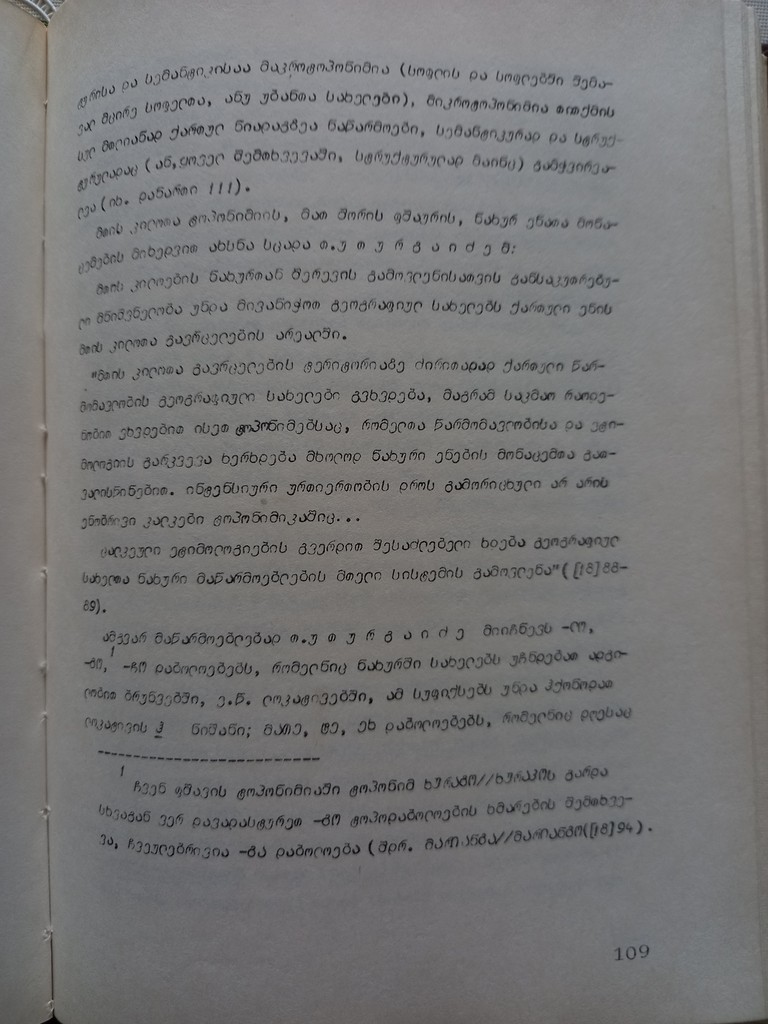 ტურისა და სემანტიკისაა მაკროტოპონიმია (სოფლის და სოფლებში შემა-
ვალ მცირე სოფელთა, ანუ უბანთა სახელები), მიკროტოპონიმია თითქმის
სულ მთლიანად ქართულ ნიადაგზეა ნაწარმოები, სემანტიკურად და სტრუქ-
ტურულადაც (ან, ყოველ შემთხვევაში, სტრუქტურულად მაინც) გამჭვირვა-
ლეა (იხ. დანართი III).
მთის კილოთა ტოპონიმიის, მათ შორის ფშაურის, ნახურ ენათა მონა-
ცემების მიხედვით ახსნა სცადა თ. უ თ უ რ გ ა ი ძ ე მ:
მთის კილოების ნახურთან შერევის გამოვლენისათვის განსაკუთრებუ-
ლი მნიშვნელობა უნდა მივანიჭოთ გეოგრაფიულ სახელებს ქართული ენის
მთის კილოთა გავრცელების არეალში.
"მთის კილოთა გავრცელების ტერიტორიაზე ძირითადად ქართული წარ-
მომავლობის გეოგრაფიული სახელები გვხვდება, მაგრამ საკმაო რაოდე-
ნობით ვხვდებით ისეთ ტოპონიმებსაც, რომელთა წარმომავლობისა და ეტი-
მოლოგიის გარკვევა ხერხდება მხოლოდ ნახური ენების მონაცემთა გათ-
ვალისწინებით. ინტენსიური ურთიერთობის დროს გამორიცხული არ არის
ენობრივი კალკები ტოპონიმიკაშიც...
ცალკეული ეტიმოლოგიების გვერდით შესაძლებელი ხდება გეოგრაფიულ
სახელთა ნახური მაწარმოებლების მთელი სისტემის გამოვლენა" ([18] 88-
89).
ამგვარ მაწარმოებლებად თ. უ თ უ რ გ ა ი ძ ე მიიჩნევს -ლო,
-გო,¹ -ჩო დაბოლოებებს, რომელნიც ნახურში სახელებს უჩნდებათ ადგი-
ლობით ბრუნვებში, ე.წ. ლოკატივებში, ამ სუფიქსებს უნდა ჰქონოდათ
ლოკატივის ნიშანი; მათე, ტე, ეხ დაბოლოებებს, რომელნიც დღესაც
1
ჩვენ ფშავის ტოპონიმიაში ტოპონიმ გარდა
სხვაგან ვერ დავადასტურეთ -გო ტოპოდაბოლოების ხმარების შემთხვე-
ვა, ჩვეულებრივია -გა დაბოლოება (შდრ. ([18] 94).
109